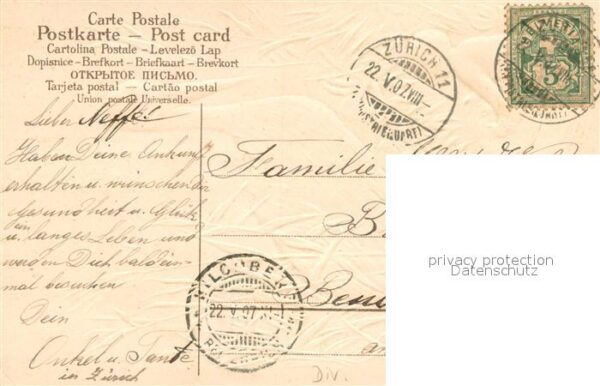 Carte Postale
Postkarte — Post card
Cartolina Postale – Levelező Lap
Dopisnice - Brefkort - Briefkaart - Brevkort
ОТКРЫТОЕ ПИСЬМО.
Tarjeta postal — Cartão postal
Union postale Universelle.
ZÜRICH 11
22. V. 07. VIII—
(INDUSTRIEQUART)
5
Lieber Neffe!
Haben Deine Ankunft
erhalten u. wünschen dir
Gesundheit u. Glück
ein
u. langes Leben und
werden Dich bald ein-
mal besuchen
Dein
Onkel u. Tante
in Zürich
Familie
22. V. 07. XI
privacy protection
Datenschutz
Div.